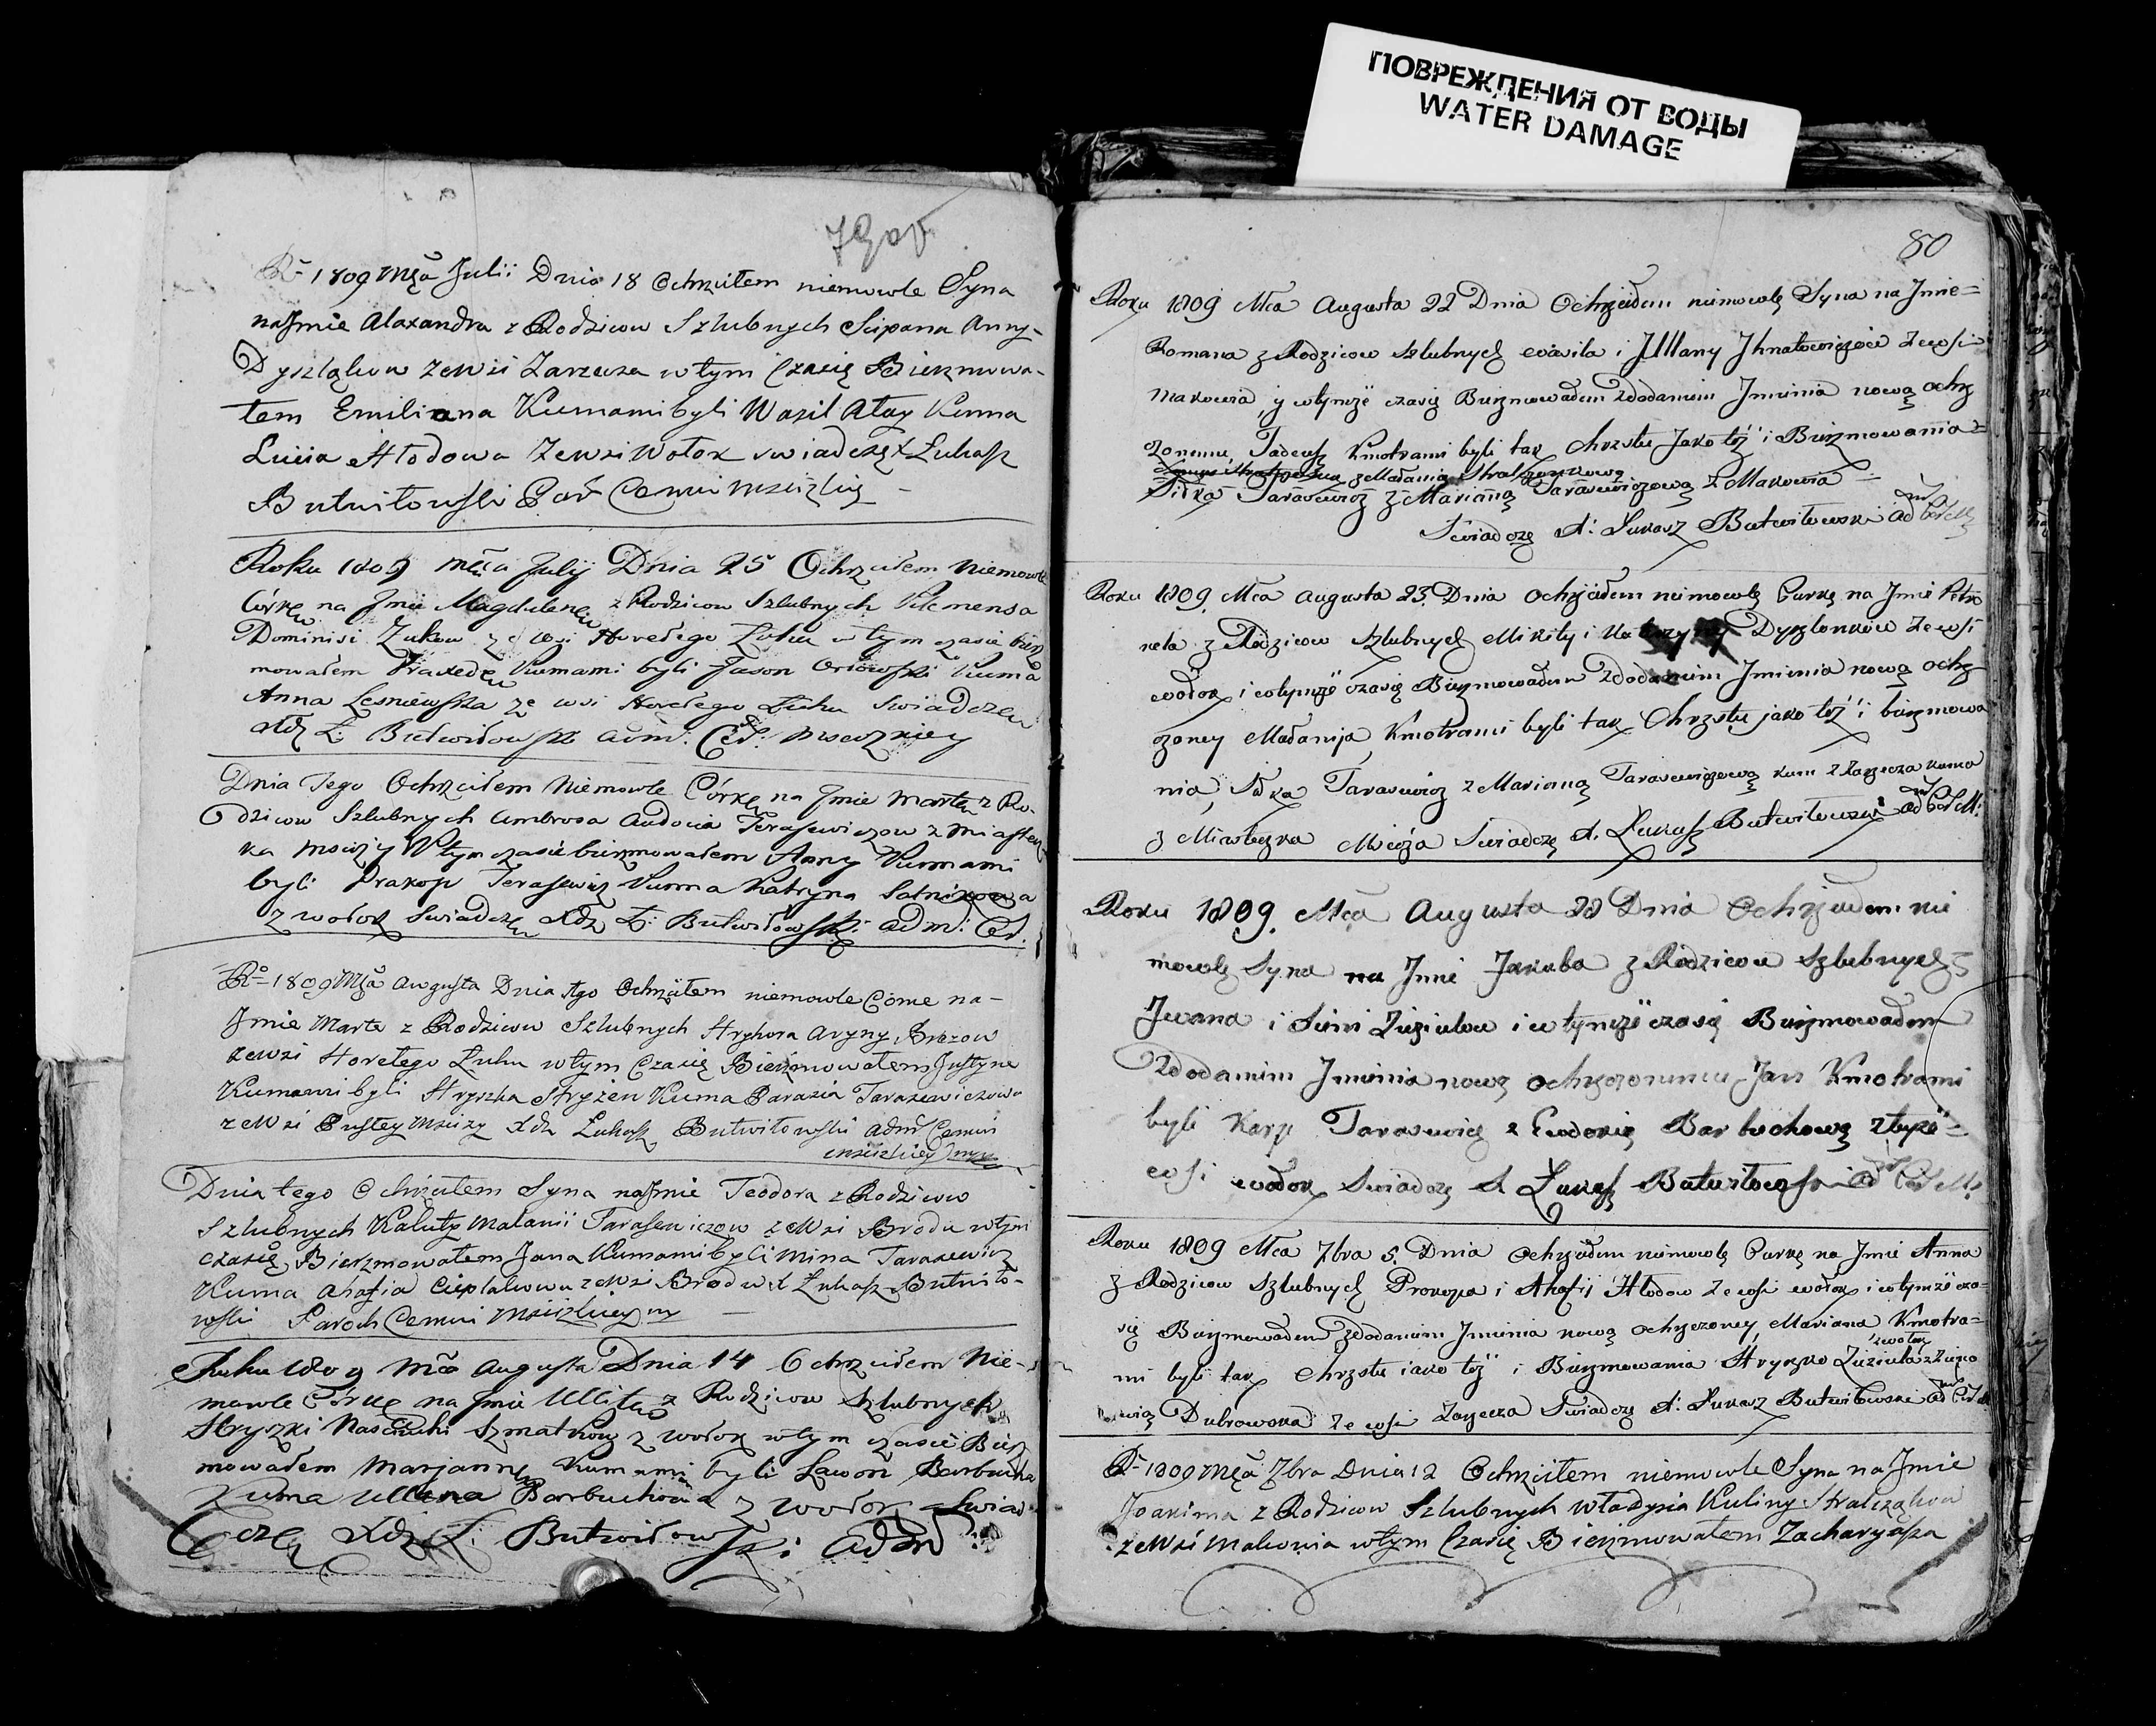 ПОВРЕЖДЕНИЯ ОТ ВОДЫ
WATER DAMAGE
79об
Rº 1809 Mca Julii Dnia 18 Ochrzciłem niemowle Syna
na Jmie Alaxandra z Rodzicow Szlubnych Scipana Anny
Dyszląkow ze Wsi Zarzecza w tym Czasię Bierzmowa-
łem Emiliana Kumami byli Wasil Kuma
Łucia Hłodowa Ze Wsi Wołok swiadczę X Łukasz
Butwiłowski Par Cerwi Mscizkiey
Roku 1809 mca Julij Dnia 25 Ochrzciłem Niemowle
Córkę na Jmie Magdalenę z Rodzicow Szlubnych Klemensa
Dominisi Zukow ze wsi Horełego Łuhu w tym czasie birz
mowałem Praxedę Kumami byli Jason Orłowski Kuma
Anna Lesniewska ze wsi Horełego Łuhu Swiadczę
Xdz Ł: Butwiłowski adm: Cer: Msciżkiey
Dnia Tego Ochrzciłem Niemowle Córkę na Jmie Martę z Ro-
dzicow Szlubnych Ambrosa Audocia Terasewiczow z Miastecz
ka Msciży W tym czasie birzmowałem Anny Kumami
byli Prakop Terasewicz Kuma Katryna Sotnikowa
z wołok Swiadczę Xdz Ł: Butwiłowski adm: Cer.
Rº 1809 Mca Augusta Dnia Ochrzciłem niemowle Córke na-
Jmie Marte z Rodzicow Szlubnych Hryhora Aryny Brazow
ze Wsi Horełego Łuhu w tym Czasię Bierzmowałem Justyne
Kumami byli Hryszka Stryżen Kuma Parasia Tarasewiczowa
ze Wsi Pustey Msciży Xdz Łukasz Butwiłowski adm Cerwi
Mscizkiey
Dnia tego Ochrzciłem Syna na Jmie Teodora z Rodzicow
Szlubnych Kaluty Małanii Tarasewiczow ze Wsi Brodu w tym
czasię Bierzmowałem Jana Kumami byli Mina Tarasewicz
Kuma Ahafia Cieplakowa ze Wsi Brodu X Łukasz Butwiło-
wski Paroch Cerwi Mscizkiey
Roku 1809 Mca Augusta Dnia 14 Ochrzciłem Nie-
mowle Córkę na Jmie Ullitę z Rodzicow Szlubnych
Hryszki Nasciuchi Szmatkow z wołok w tym czasie Birz
mowałem Marjannę Kumami byli Ławon Barbucha
Kuma Ullena Barbuchowa z wołok Swiad
czę Xdz Ł: Butwiłowski adm
80
Roku 1809 Mca Augusta 22 Dnia Ochrzciłem niemowlę Syna na Jmie=
Romana z Rodzicow Szlubnych i Jllany Jhnatowiczow ze wsi
Makowia y w tymże czasię Birzmowałem z dodaniem Jmienia nową ochrz
czonemu, Tadeusz Kmotrami byli tak Chrzstu Jako też i Birzmowania=
Sidka Tarasewicz z Marianą Tarasewiczową z Makowia
Swiadczę X: Łukasz Butwiłowski ad
Roku 1809. Mca Augusta 23. Dnia Ochrzciłem niemowlę Curkę na Jmie Petro
nela z Rodzicow Szlubnych Mikity i Dyszlonków ze wsi
wołok i w tymże czasię Birzmowałem z dodaniem Jmienia nową ochrz
czoney Małanija, Kmotrami byli tak Chrzstu jako też i birzmowa
nia, Sidka Tarasewicz z Marianą Tarasewiczową kum z Zarzecza kuma
z Miasteczka Mściża Swiadczę X. Łukasz Butwiłowski ad Cer M:
Roku 1809. Mca Augusta 28 Dnia Ochrzciłem nie
mowlę Syna na Jmie Jakuba z Rodzicow Szlubnych
Jwana i Ziziulow i w tymże czasię Birzmowałem
z dodaniem Jmienia nową ochrzczonemu Jan Kmotrami
byli Karp Tarasewicz z Eudokią Barbuchową z teyże=
wsi wołok Swiadczę X Łukasz Butwiłowski ad Cer M.
Roku 1809 Mca 7bra 5. Dnia Ochrzciłem niemowlę Curkę na Jmie Anna
z Rodzicow Szlubnych Prokopa i Ahafij Hłodow ze wsi wołok i w tymże cza=
się Birzmowałem z dodaniem Jmienia nową ochrzczoney Mariana Kmotra=
mi byli tak Chrzstu iako też i Birzmowania Hryszko Ziziula z wołok
Dubrowska ze wsi Zarzecza Swiadczę X: Łukasz Butwiłowski ad
Rº 1809 Mca 7bra Dnia 12 Ochrzciłem niemowle Syna na Jmie
Joakima z Rodzicow Szlubnych Władysia Kuliny Stralcząkow
ze Wsi Makowia w tym Czasię Bierzmowałem Zacharyasza